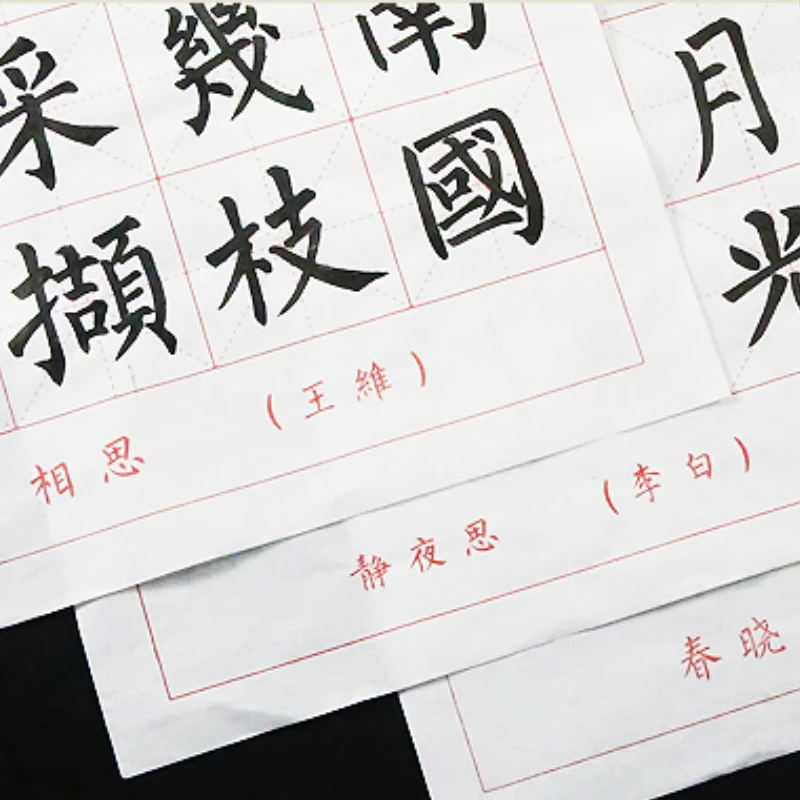 南國
幾枝
采擷
相思 (王維)
月光
静夜思 (李白)
春晓